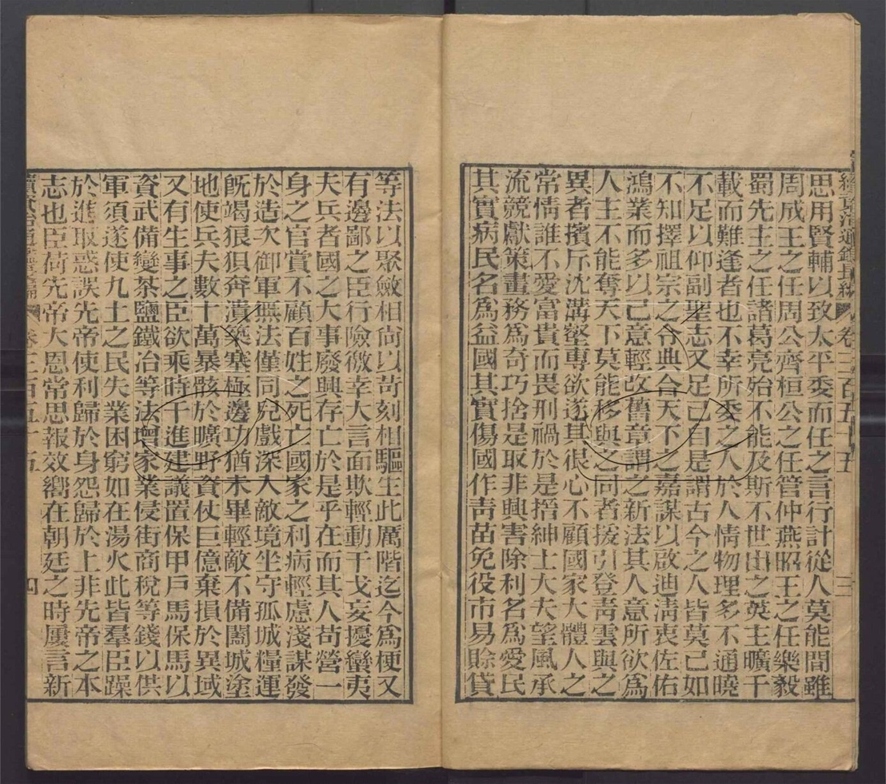 續資治通鑑長編 卷三百五十五 三
思用賢輔以致太平委而任之言行計從人莫能間雖
周成王之任周公齊桓公之任管仲燕昭王之任樂毅
蜀先主之任諸葛亮殆不能及斯不世出之英主曠千
載而難逢者也不幸所委之人於人情物理多不通曉
不足以仰副聖志又足己自是謂古今之人皆莫己如
不知擇祖宗之令典合天下之嘉謀以啟迪清衷佐佑
鴻業而多以己意輕改舊章謂之新法其人意所欲為
人主不能奪天下莫能移與之同者援引登青雲與之
異者擯斥沈溝壑專欲遂其很心不顧國家大體人之
常情誰不愛富貴而畏刑禍於是搢紳士大夫望風承
流競獻策畫務為奇巧捨是取非興害除利名為愛民
其實病民名為益國其實傷國作青苗免役市易賖貸
等法以聚斂相尚以苛刻相驅生此厲階迄今為梗又
有邊鄙之臣行險徼幸大言面欺輕動干戈妄擾蠻夷
夫兵者國之大事廢興存亡於是乎在而其人苟營一
身之官賞不顧百姓之死亡國家之利病輕慮淺謀發
於造次御軍無法僅同兒戲深入敵境坐守孤城糧運
旣竭狼狽奔潰築塞極邊功猶未畢輕敵不備闔城塗
地使兵夫數十萬暴骸於曠野資仗巨億棄損於異域
又有生事之臣欲乘時干進建議置保甲戶馬保馬以
資武備變茶鹽鐵冶等法增家業侵街商稅等錢以供
軍須遂使九土之民失業困窮如在湯火此皆羣臣躁
於進取惑誤先帝使利歸於身怨歸於上非先帝之本
志也臣荷先帝大恩常思報效嚮在朝廷之時屢言新
續資治通鑑長編 卷三百五十五 四